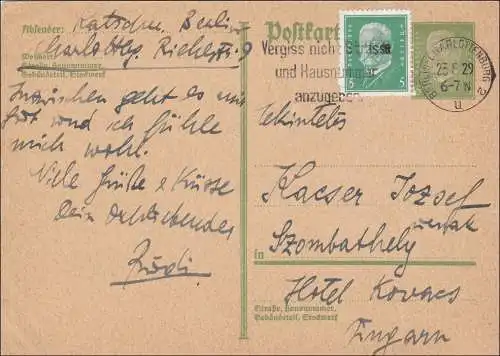 Absender: Katscher, Berlin
Charlottbg, Riehlstr. 9
Wohnort
Straße, Hausnummer,
Gebäudeteil, Stockwerk
Inzwischen geht es mir
gut und ich fühle
mich wohl.
Viele Grüße & Küsse
Dein
Rudi
Postkarte
Vergiss nicht Strasse
und Hausnummer
anzugeben
DEUTSCHES REICH
5 5
BERLIN-CHARLOTTENBURG 2
25.6.29
6-7 N
u
tekintetes
Kacser Jozsef
urnak
in Szombathely
Hotel Kovacs
Straße, Hausnummer,
Gebäudeteil, Stockwerk
Ungarn